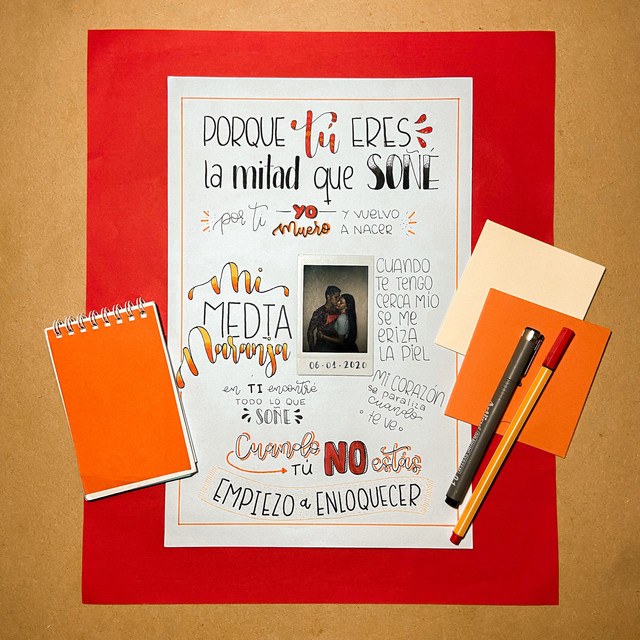 PORQUE tú ERES
la mitad que SOÑÉ
por ti YO Muero Y VUELVO A NACER
Mi
MEDIA
Naranja
CUANDO
TE TENGO
CERCA MÍO
SE ME
ERIZA
LA PIEL
06·01·2020
en TI encontré
TODO LO QUE
SOÑÉ
MI CORAZÓN
se paraliza
cuando
te ve
Cuando
TÚ NO estás
EMPIEZO a ENLOQUECER